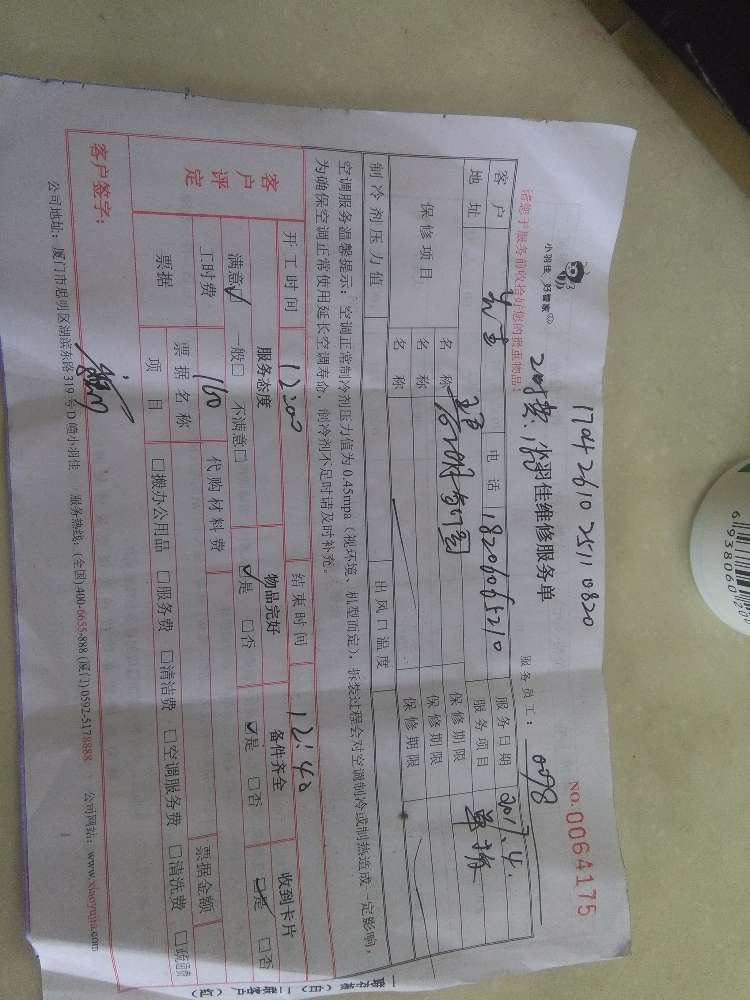 17042610 25110820
小羽佳 好管家
工时费:160
小羽佳维修服务单
NO.0064175
请您于服务前收拾好您的贵重物品!
服务员工: 0098
客户 电话 18206065210 服务日期 2017.4.
地址 服务项目
保修项目 名称 保修期限
名称 保修期限
名称 保修期限
制冷剂压力值 出风口温度
空调服务温馨提示:空调正常制冷剂压力值为0.45mpa(视环境、机型而定),拆装过程会对空调制冷或制热造成一定影响,
为确保空调正常使用延长空调寿命,制冷剂不足时请及时补充。
开工时间 12:00 结束时间 12:40
客户评定 服务态度 物品完好 备件齐全 收到卡片
满意☑ 一般□ 不满意□ ☑是 □否 ☑是 □否 ☑是 □否
工时费 160 代购材料费
票据 票据名称 票据金额
项目 □搬办公用品 □服务费 □清洁费 □空调服务费 □清洗费 □疏通费
客户签字:
公司地址:厦门市思明区湖滨东路319号D幢小羽佳 服务热线:(全国)400-6655-888 (厦门)0592-5178888 公司网站:www.xiaoyujia.com